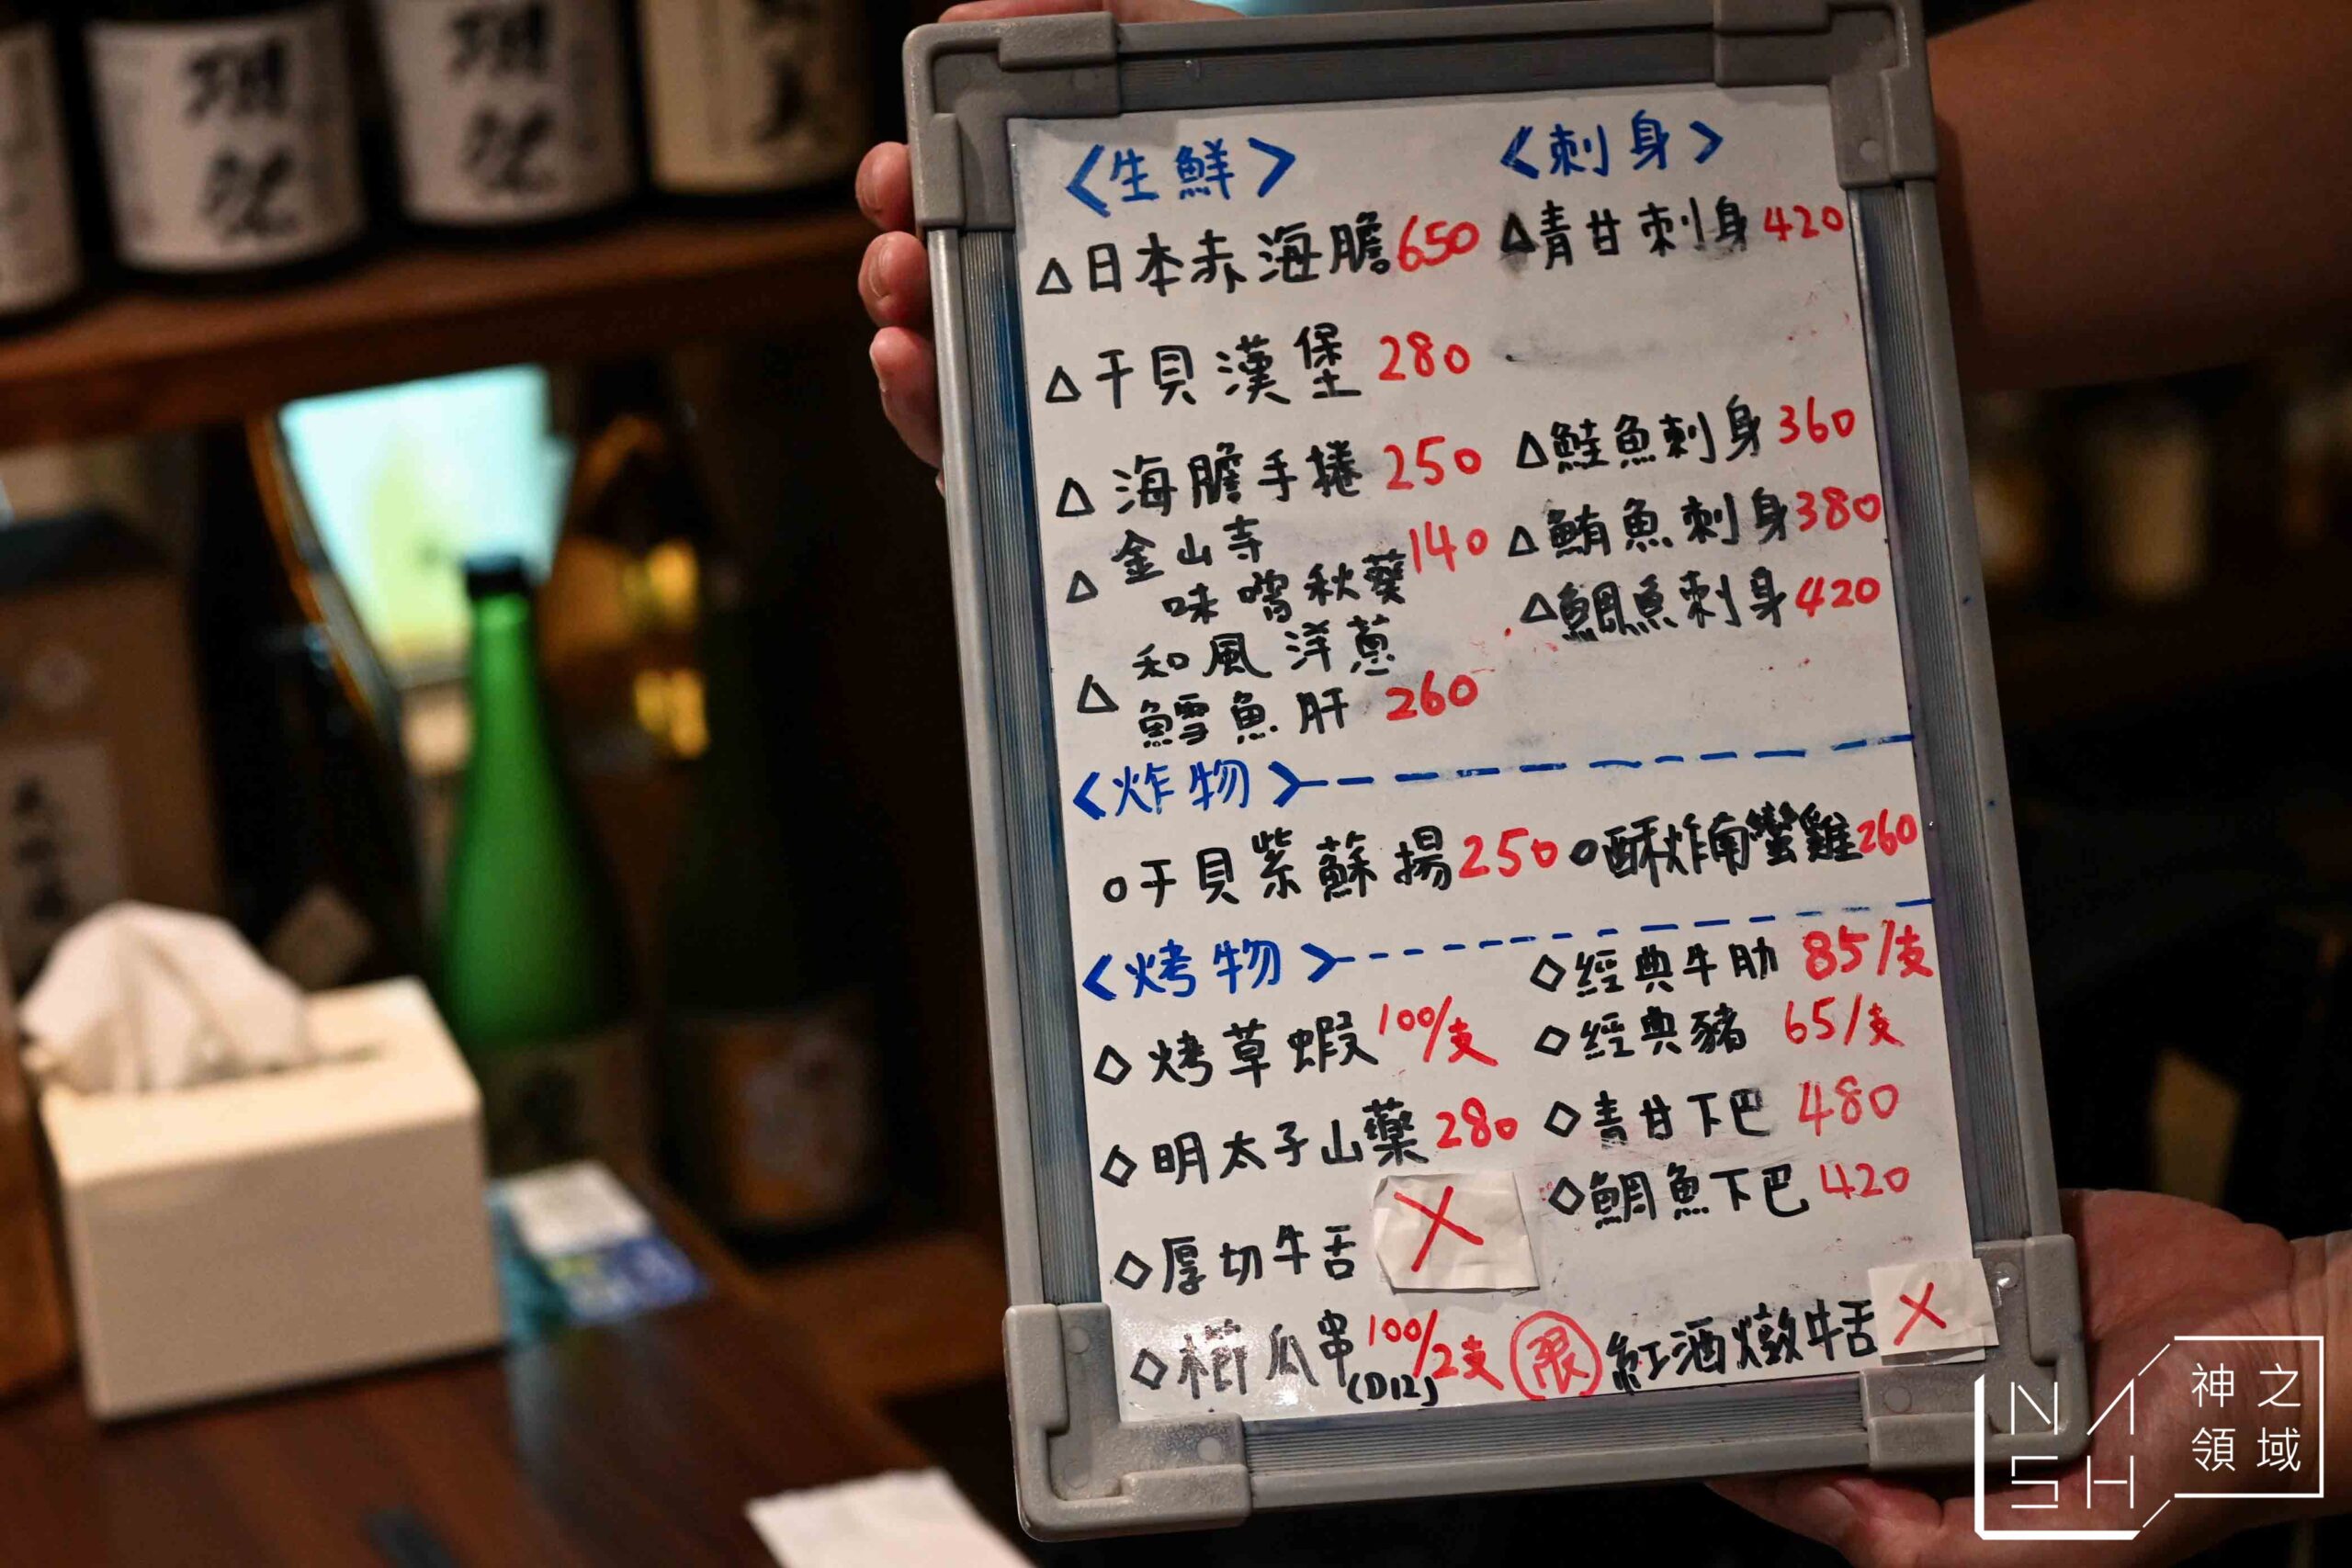 〈生鮮〉
△日本赤海膽650
△干貝漢堡 280
△海膽手捲 250
△金山寺
味噌秋葵140
△和風洋蔥
鱈魚肝 260
〈刺身〉
△青甘刺身420
△鮭魚刺身360
△鮪魚刺身380
△鯛魚刺身420
〈炸物〉
○干貝紫蘇揚250 ○酥炸南蠻雞260
〈烤物〉
◇烤草蝦100/支
◇明太子山藥280
◇厚切牛舌 X
◇櫛瓜串100/2支
(D12)
◇經典牛肋 85/支
◇經典豬 65/支
◇青甘下巴 480
◇鯛魚下巴 420
限 紅酒燉牛舌 X
獺祭
獺祭
NASH
神之
領域